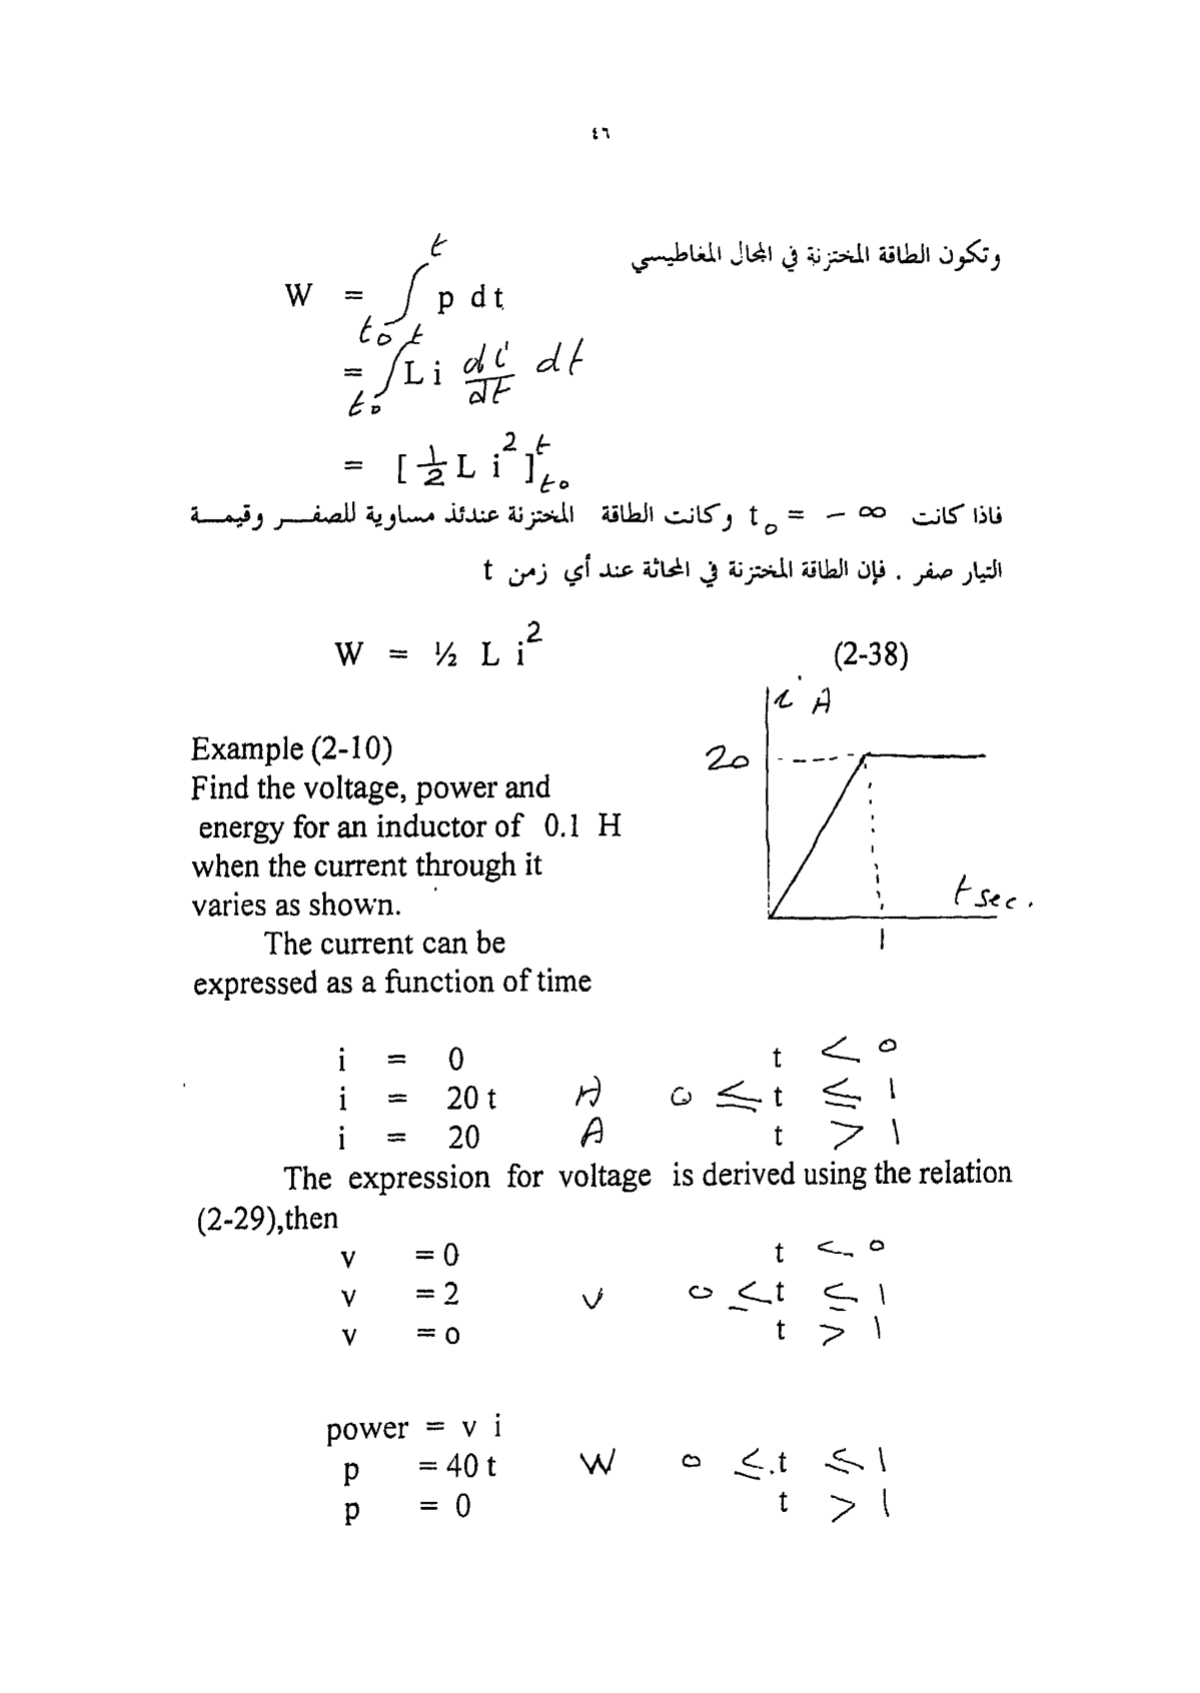 ٤٦
وتكون الطاقة المختزنة في المجال المغاطيسي
t
W = ∫ p dt
t₀ t
= ∫ L i di/dt dt
t₀
= [ 1/2 L i² ]ᵗt₀
فاذا كانت t₀ = − ∞ وكانت الطاقة المختزنة عندئذ مساوية للصفـــر وقيمـــة
التيار صفر . فإن الطاقة المختزنة في المحاثة عند أي زمن t
W = ½ L i² (2-38)
i A
20
Example (2-10)
Find the voltage, power and
energy for an inductor of 0.1 H
when the current through it
varies as shown.
t sec.
1
The current can be
expressed as a function of time
i = 0 t < 0
i = 20 t A 0 ≤ t ≤ 1
i = 20 A t > 1
The expression for voltage is derived using the relation
(2-29),then
v = 0 t < 0
v = 2 v 0 ≤ t ≤ 1
v = o t > 1
power = v i
p = 40 t W 0 ≤ t ≤ 1
p = 0 t > 1